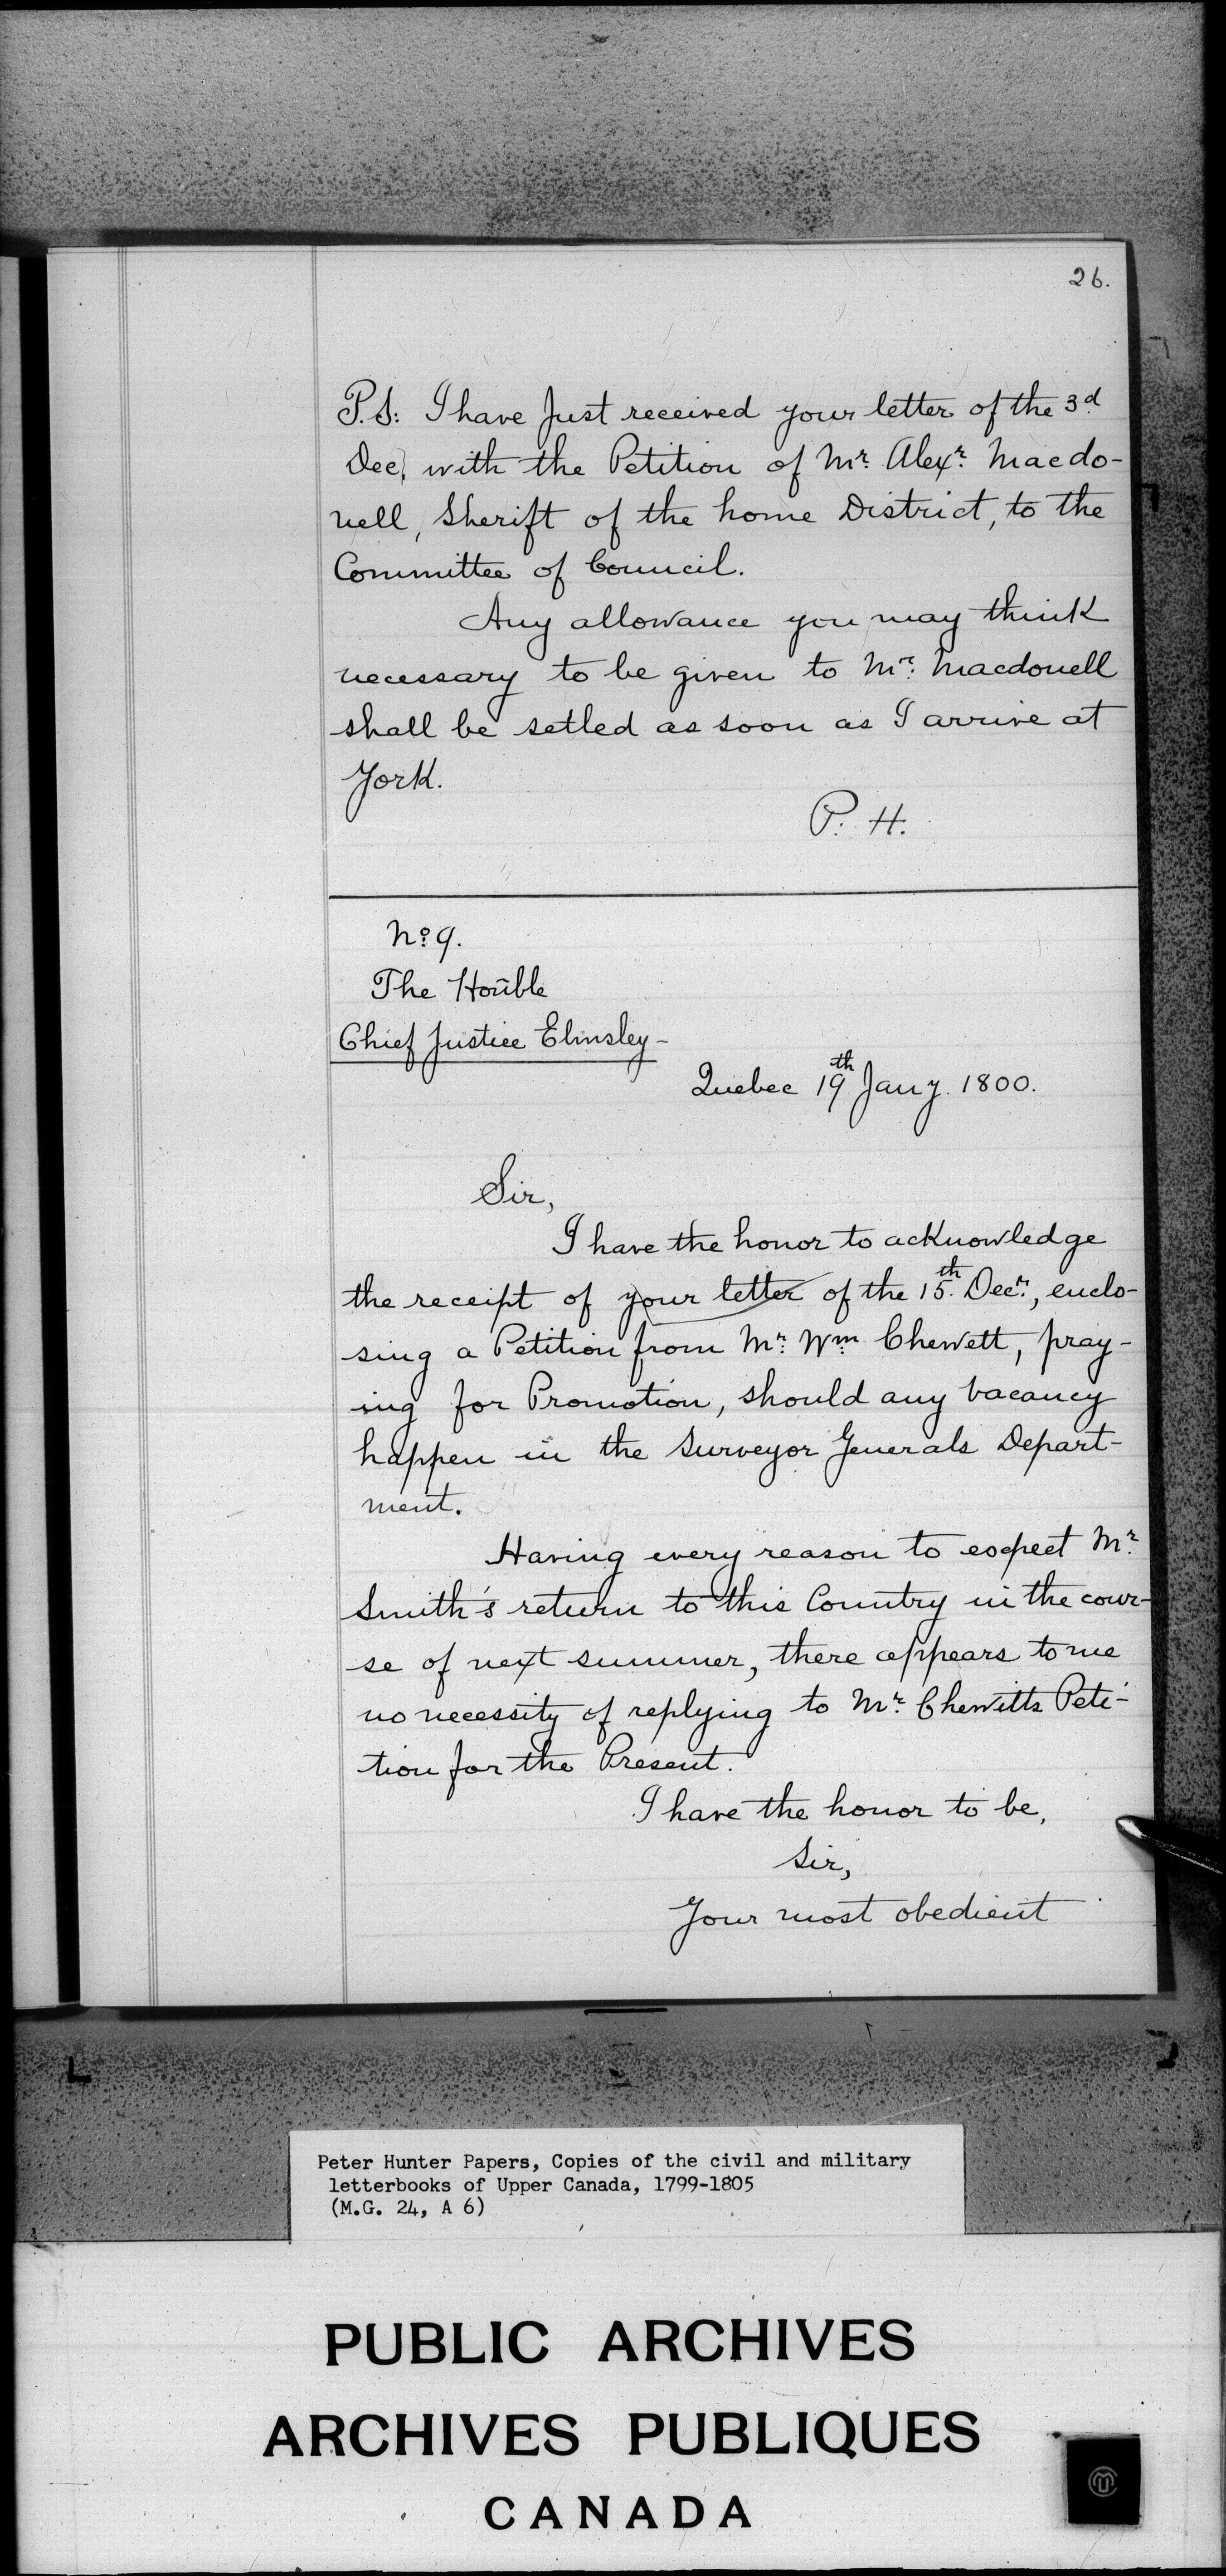 26.
P.S: I have Just received your letter of the 3d
Dec, with the Petition of Mr. Alexr. Macdo-
nell, Sherift of the home District, to the
Committee of Council.
Any allowance you may think
necessary to be given to Mr. Macdonell
shall be setled as soon as I arrive at
York.
P. H.
No. 9.
The Honble
Chief Justice Elmsley -
Quebec 19th Jany. 1800.
Sir,
I have the honor to acknowledge
the receipt of your letter of the 15th. Decr., enclo-
sing a Petition from Mr. Wm. Chewett, pray-
ing for Promotion, should any vacancy
happen in the Surveyor Generals Depart-
ment.
Having every reason to expect Mr.
Smith's return to this Country in the cour-
se of next summer, there appears to me
no necessity of replying to Mr. Chewitts Peti-
tion for the Present.
I have the honor to be,
Sir,
Your most obedient
Peter Hunter Papers, Copies of the civil and military
letterbooks of Upper Canada, 1799-1805
(M.G. 24, A 6)
PUBLIC ARCHIVES
ARCHIVES PUBLIQUES
CANADA